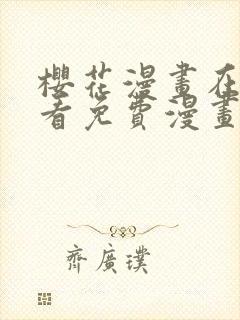 櫻花漫畫在
看免費漫畫
齊廣璞